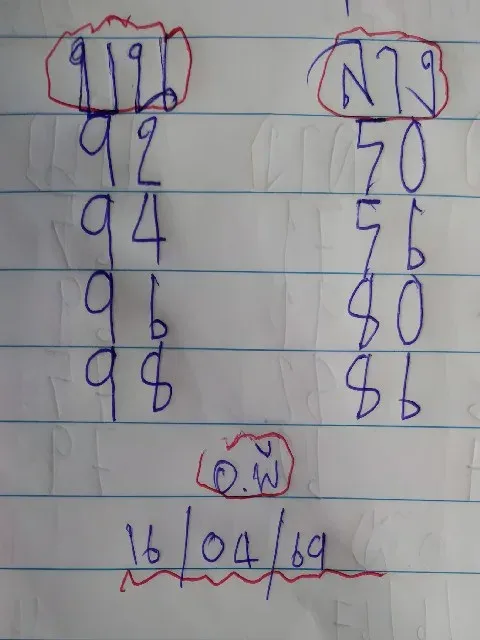 บน ล่าง
92 50
94 56
96 80
98 86
อ.พี
16/04/69